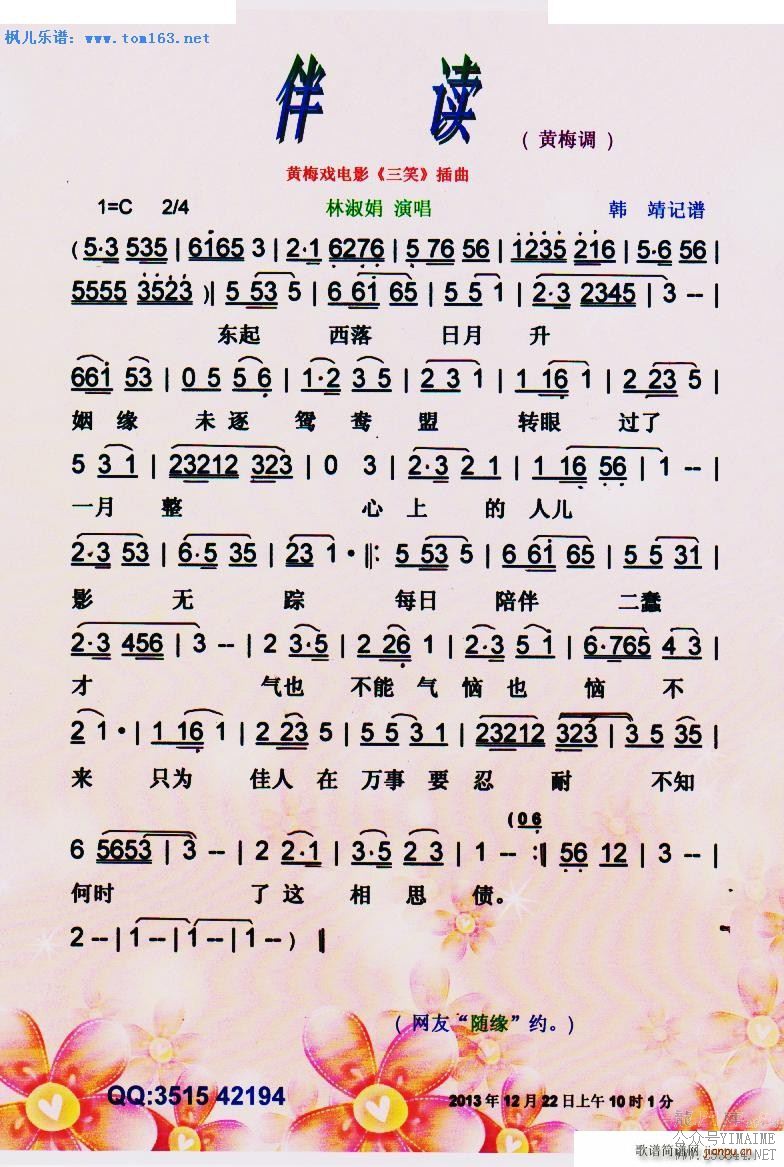 枫儿乐谱：www.tom163.net
伴 读
( 黄梅调 )
黄梅戏电影《三笑》插曲
1=C 2/4 林淑娟 演唱 韩 靖记谱
( 5·3 535 | 6165 3 | 2·1 6276 | 5 76 56 | 1235 216 | 5·6 56 |
5555 3523 )| 5 53 5 | 6 61 65 | 5 5 1 | 2·3 2345 | 3 -- |
东起 西落 日月 升
661 53 | 0 5 5 6 | 1·2 3 5 | 2·3 2 | 1 16 1 | 2 23 5 |
姻缘 未逐 鸳鸯 盟 转眼 过了
5 3 1 | 23212 323 | 0 3 | 2·3 2 1 | 1 16 56 | 1 -- |
一月 整 心上 的 人儿
2·3 53 | 6·5 35 | 23 1 · ‖: 5 53 5 | 6 61 65 | 5 5 31 |
影 无 踪 每日 陪伴 二蠢
2·3 456 | 3 -- | 2 3·5 | 2 26 1 | 2·3 5 1 | 6·765 4 3 |
才 气也 不能 气 恼 也 恼 不
2 1 · | 1 16 1 | 2 23 5 | 5 5 3 1 | 23212 323 | 3 5 35 |
来 只为 佳人 在 万事 要 忍 耐 不知
(0 6
6 5653 | 3 -- | 2 2·1 | 3·5 2 3 | 1 -- :‖ 56 12 | 3 -- |
何时 了这 相 思 债。
2 -- | 1 -- | 1 -- | 1 -- ) ‖
( 网友“随缘”约。)
QQ:3515 42194
2013 年 12 月 22 日上午 10 时 1 分
公众号YIMAIME
歌谱简谱网 jianpu.cn